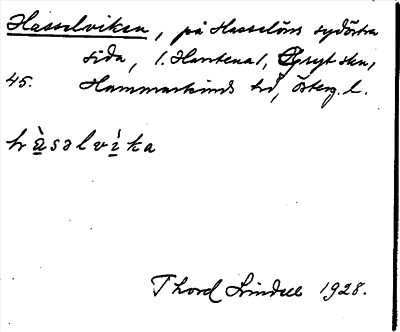 Hasselviken, på Hasselöns sydöstra
sida, (. Harstena), Gryt skn,
45. Hammarkinds hd, Österg. l.
hàsəlvìka
Thord Lindell 1928.